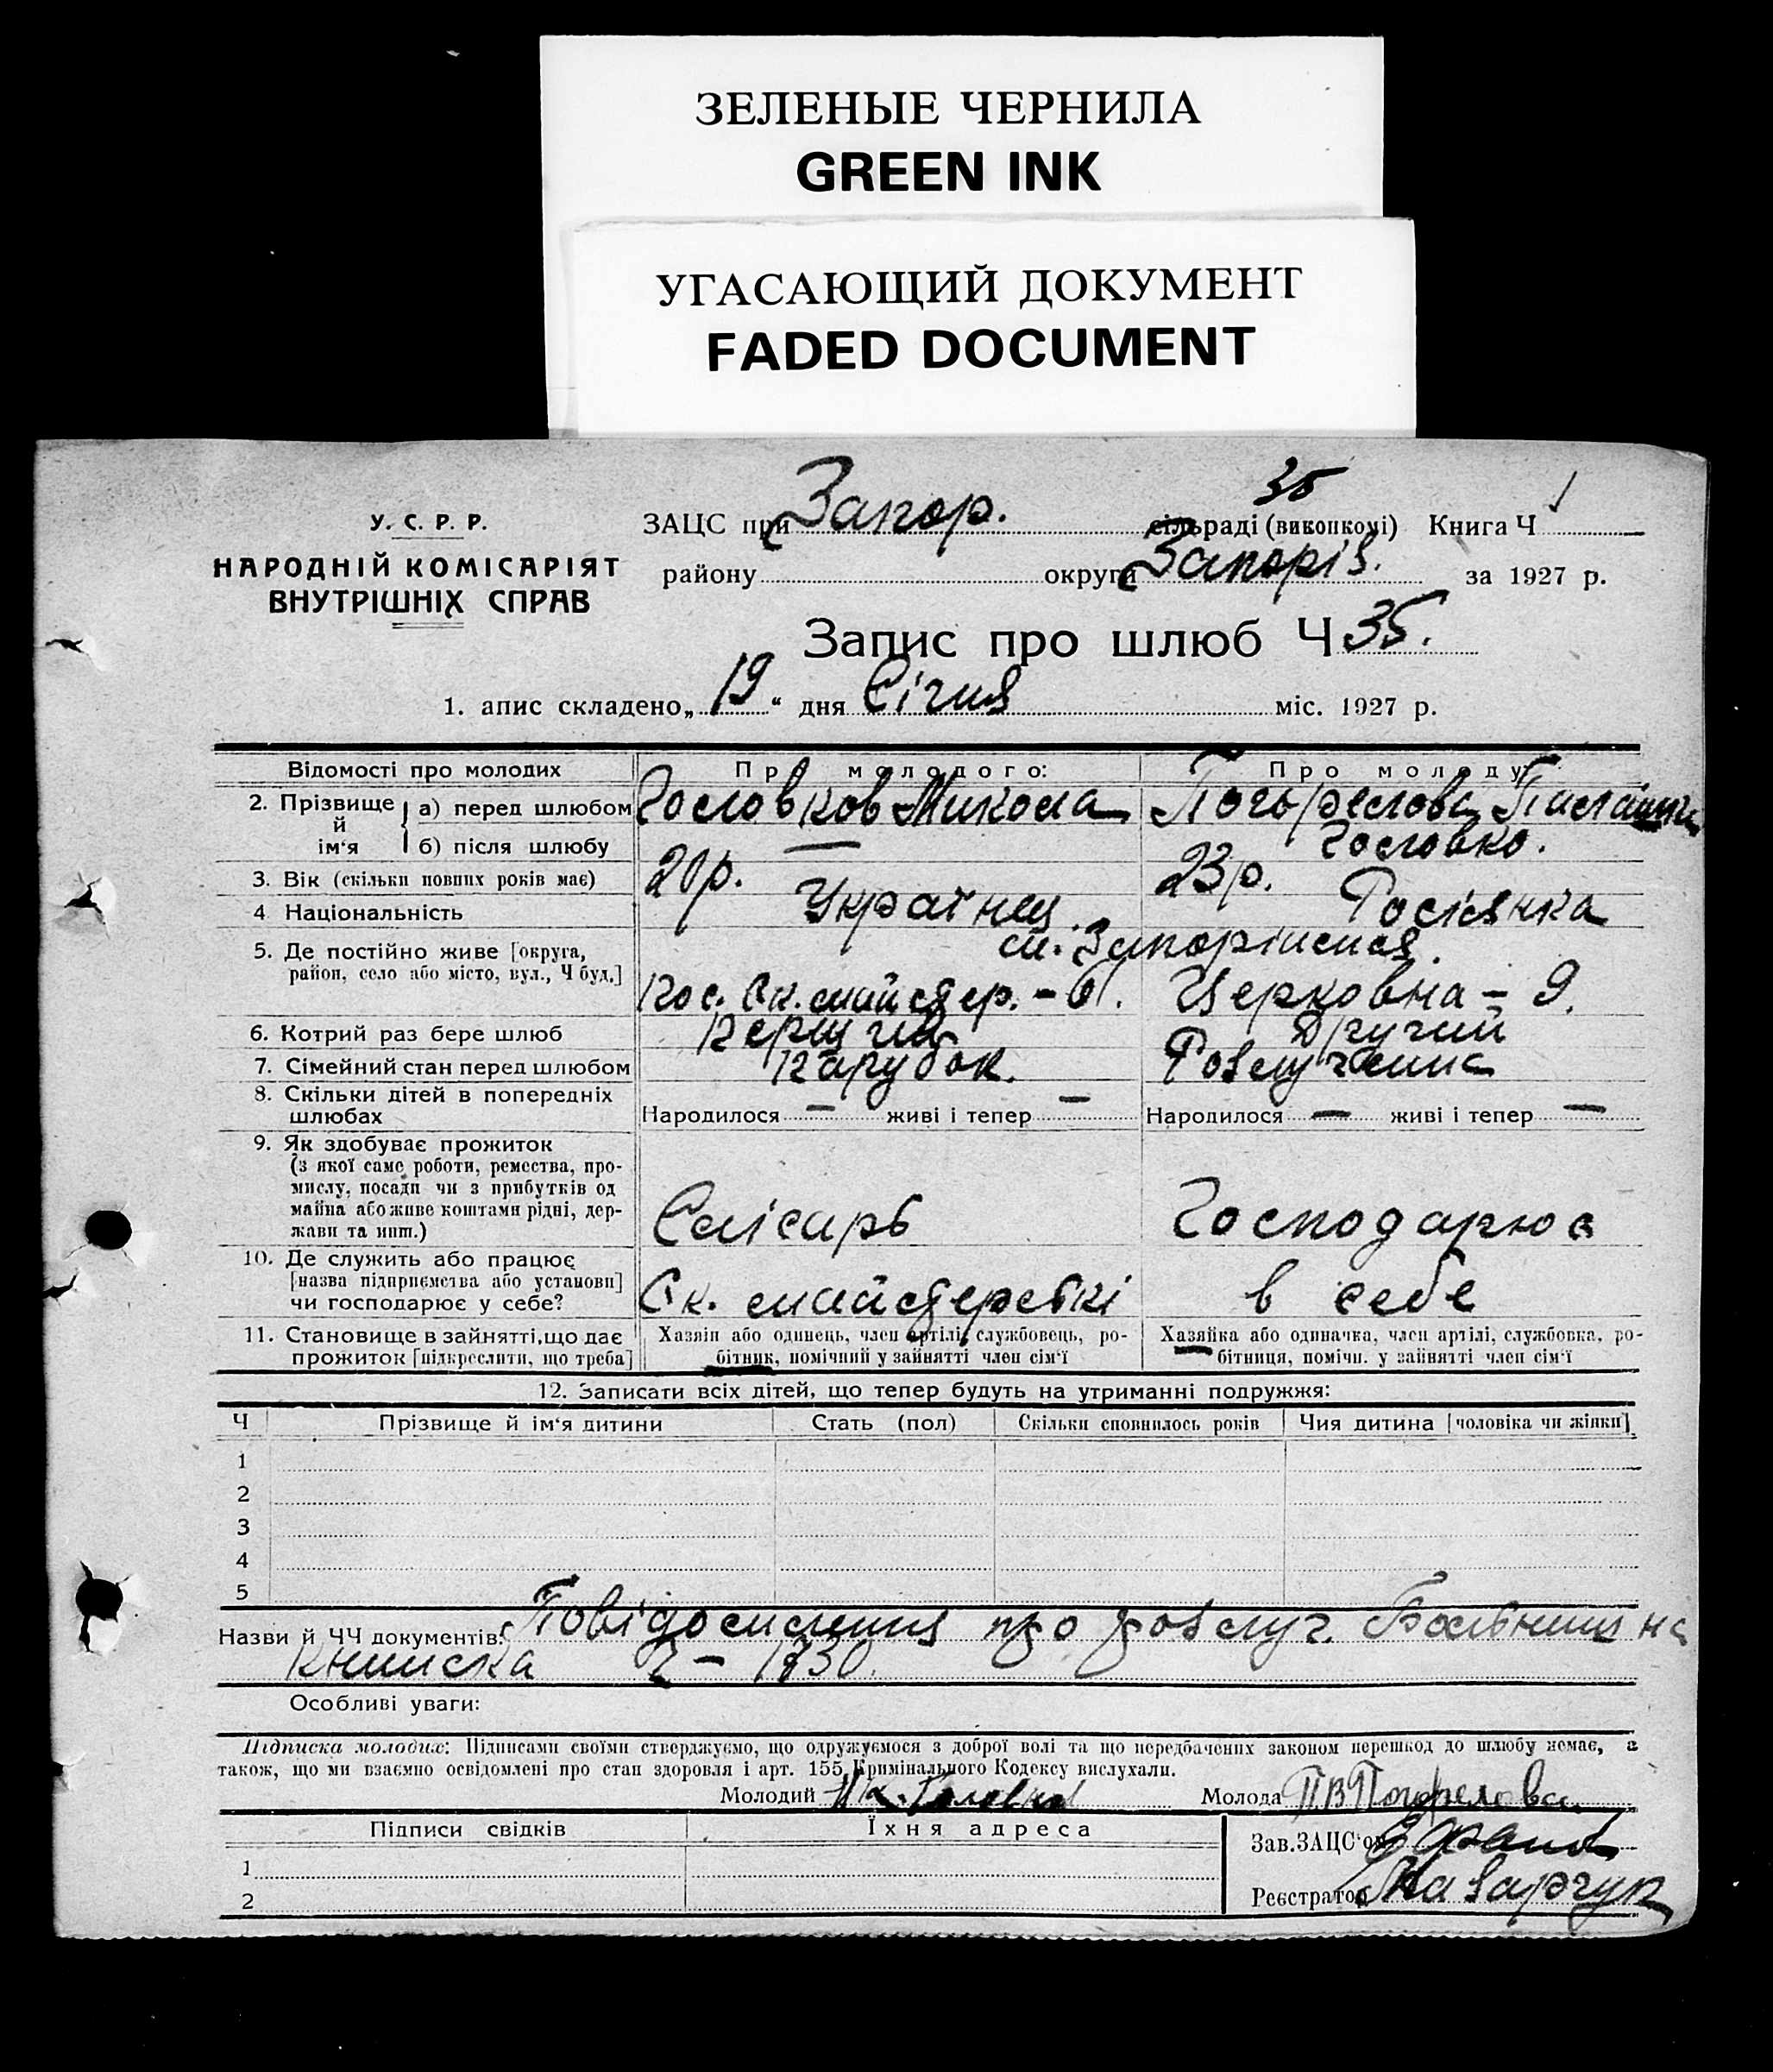 ЗЕЛЕНЫЕ ЧЕРНИЛА
GREEN INK
УГАСАЮЩИЙ ДОКУМЕНТ
FADED DOCUMENT
35
У. С. Р. Р.
НАРОДНІЙ КОМІСАРІЯТ
ВНУТРІШНІХ СПРАВ
ЗАЦС при Запор. сільраді (виконкомі) Книга Ч 1
району округи Запоріз. за 1927 р.
Запис про шлюб Ч 35.
1. апис складено „19“ дня Січня міс. 1927 р.
Відомості про молодих Про молодого: Про молоду:
2. Прізвище й ім‘я а) перед шлюбом Головков Микола Погорєлова
б) після шлюбу — Головко.
3. Вік (скільки повних років має) 20 р. 23 р.
4 Національність Українец. Росіянка
5. Де постійно живе [округа, м. Запоріжжя.
район, село або місто, вул., Ч буд.] майстер. - 61. Церковна - 9.
6. Котрий раз бере шлюб Перший Другий
7. Сімейний стан перед шлюбом Парубок. Розлучена
8. Скільки дітей в попередніх
шлюбах Народилося — живі і тепер — Народилося — живі і тепер —
9. Як здобуває прожиток
(з якої саме роботи, ремества, про-
мислу, посади чи з прибутків од
майна або живе коштами рідні, дер-
жави та инш.) Слісарь Господарює
10. Де служить або працює
[назва підприємства або установи]
чи господарює у себе? Ск. майстерські в себе
11. Становище в зайнятті, що дає Хазяїн або одинець, член артілі, службовець, ро- Хазяйка або одиначка, член артілі, службовка, ро-
прожиток [підкреслити, що треба] бітник, помічний у зайнятті член сім‘ї бітниця, помічн. у зайнятті член сім‘ї
12. Записати всіх дітей, що тепер будуть на утриманні подружжя:
Ч Прізвище й ім‘я дитини Стать (пол) Скільки сповнилось років Чия дитина [чоловіка чи жінки]
1
2
3
4
5
Назви й ЧЧ документів: Повідомлення про розлуч. Больнична
книжка Ч - 1730.
Особливі уваги:
Підписка молодих: Підписами своїми стверджуємо, що одружуємося з доброї волі та що передбачених законом перешкод до шлюбу немає, а
також, що ми взаємно освідомлені про стан здоровля і арт. 155 Кримінального Кодексу вислухали.
Молодий Молода П В Погорелова
Підписи свідків Їхня адреса Зав. ЗАЦС‘ом
1
2 Реєстратор Назарчук